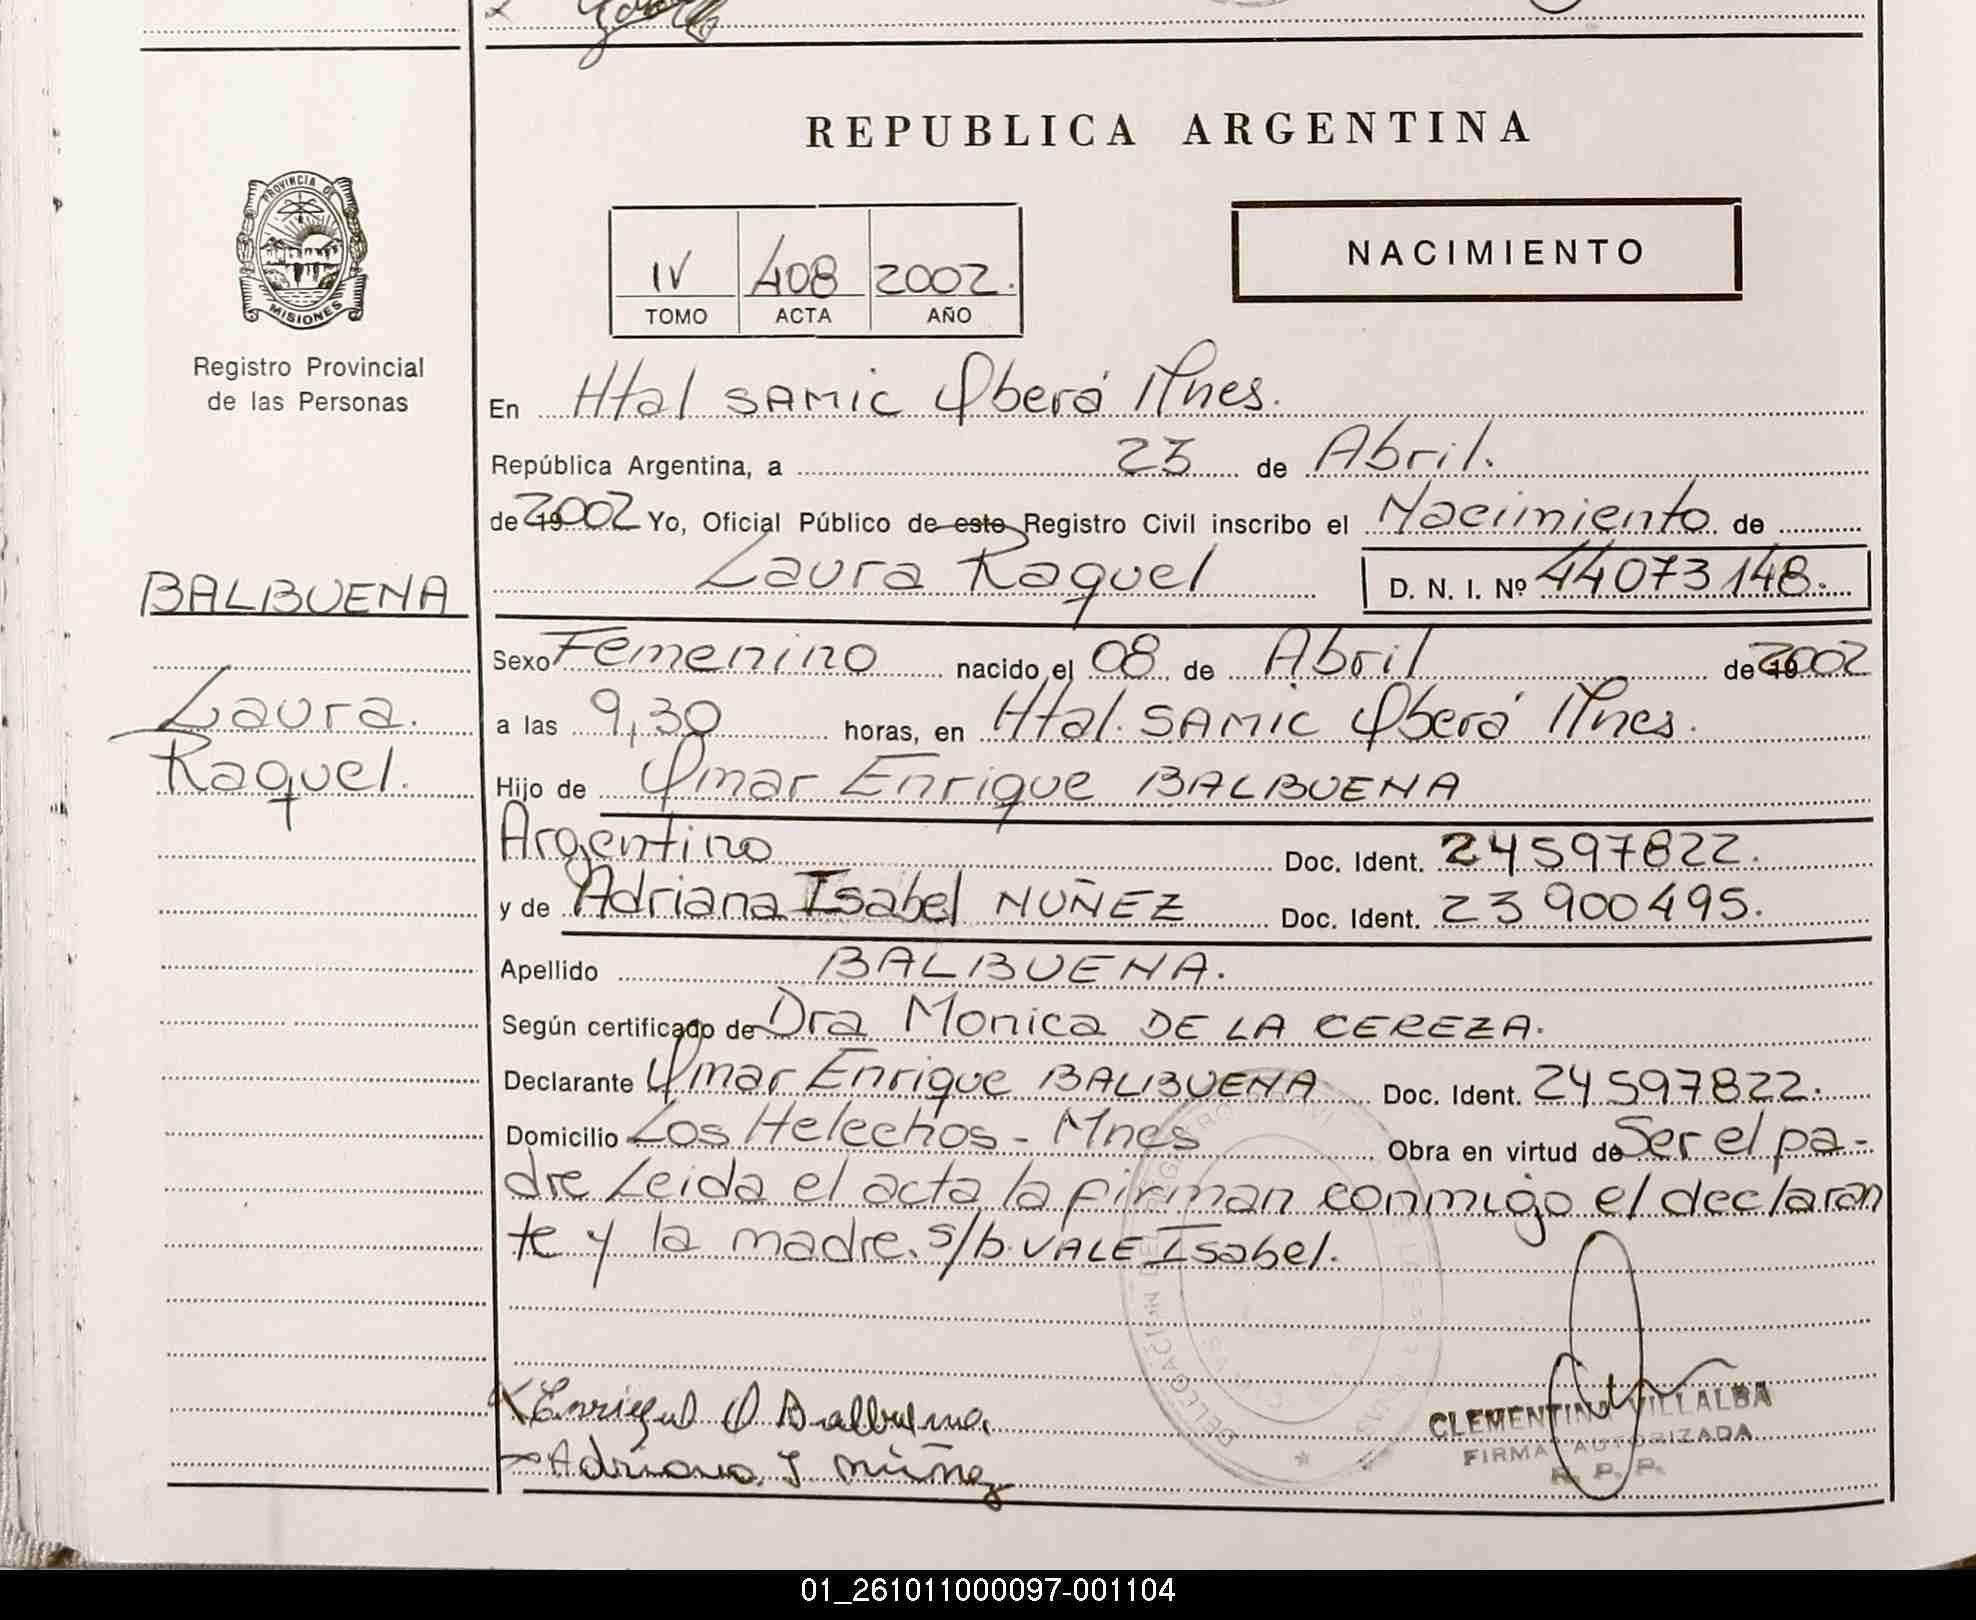 REPUBLICA ARGENTINA
PROVINCIA DE
MISIONES
Registro Provincial
de las Personas
NACIMIENTO
IV 408 2002.
TOMO ACTA AÑO
En Htal SAMIC Oberá Mnes.
República Argentina, a 23 de Abril.
de 2002 Yo, Oficial Público de este Registro Civil inscribo el Nacimiento de
Laura Raquel D. N. I. Nº 44073148.
BALBUENA
Laura.
Raquel.
Sexo Femenino nacido el 08 de Abril de 2002
a las 9,30 horas, en Htal. SAMIC Oberá Mnes.
Hijo de Omar Enrique BALBUENA
Argentino Doc. Ident. 24597822.
y de Adriana Isabel NUÑEZ Doc. Ident. 23900495.
Apellido BALBUENA.
Según certificado de Dra Monica DE LA CEREZA.
Declarante Omar Enrique BALBUENA Doc. Ident. 24597822.
Domicilio Los Helechos - Mnes Obra en virtud de Ser el pa-
dre Leida el acta la firman conmigo el declaran
te y la madre. s/b. VALE Isabel.
Enrique O Balbuena
Adriana I Núñez
CLEMENTINA VILLALBA
FIRMA AUTORIZADA
R. P. P.
01_261011000097-001104